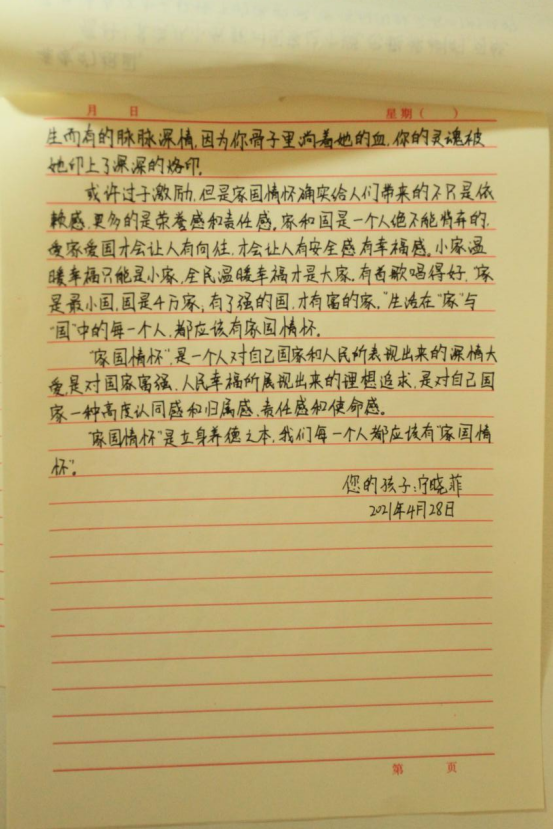 月 日 星期( )
生而有的脉脉深情,因为你骨子里淌着她的血,你的灵魂被
她印上了深深的烙印。
或许过于激励,但是家国情怀确实给人们带来的不只是依
赖感,更多的是荣誉感和责任感。家和国是一个人绝不能背弃的,
爱家爱国才会让人有向往,才会让人有安全感有幸福感。小家温
暖幸福只能是小家,全民温暖幸福才是大家。有首歌唱得好,“家
是最小国,国是千万家,有了强的国,才有富的家,”生活在“家”与
“国”中的每一个人,都应该有家国情怀。
“家国情怀”,是一个人对自己国家和人民所表现出来的深情大
爱,是对国家富强、人民幸福所展现出来的理想追求,是对自己国
家一种高度认同感和归属感、责任感和使命感。
“家国情怀”是立身养德之本,我们每一个人都应该有“家国情
怀”。
您的孩子:宁晓菲
2021年4月28日
第 页